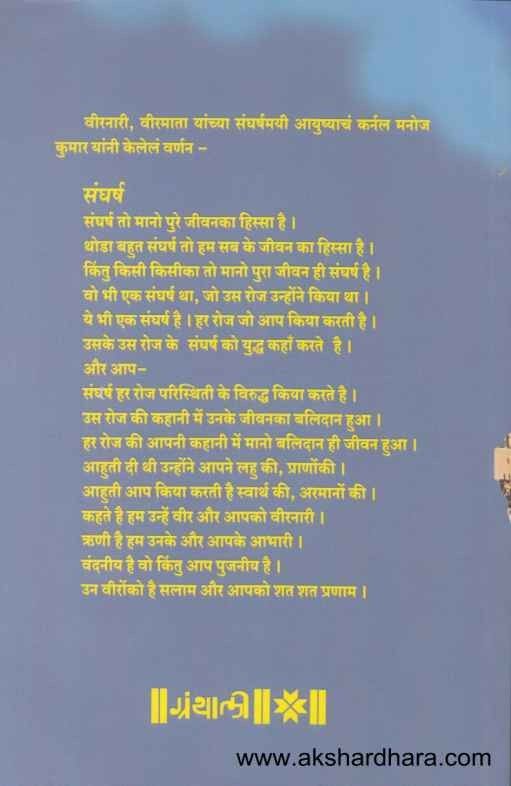 वीरनारी, वीरमाता यांच्या संघर्षमयी आयुष्याचं कर्नल मनोज
कुमार यांनी केलेलं वर्णन –
संघर्ष
संघर्ष तो मानो पुरे जीवनका हिस्सा है ।
थोडा बहुत संघर्ष तो हम सब के जीवन का हिस्सा है ।
किंतु किसी किसीका तो मानो पुरा जीवन ही संघर्ष है ।
वो भी एक संघर्ष था, जो उस रोज उन्होंने किया था ।
ये भी एक संघर्ष है । हर रोज जो आप किया करती है ।
उसके उस रोज के संघर्ष को युद्ध कहाँ करते है ।
और आप–
संघर्ष हर रोज परिस्थिती के विरुद्ध किया करते है ।
उस रोज की कहानी में उनके जीवनका बलिदान हुआ ।
हर रोज की आपनी कहानी में मानो बलिदान ही जीवन हुआ ।
आहुती दी थी उन्होंने आपने लहु की, प्राणोंकी ।
आहुती आप किया करती है स्वार्थ की, अरमानों की ।
कहते है हम उन्हें वीर और आपको वीरनारी ।
ऋणी है हम उनके और आपके आभारी ।
वंदनीय है वो किंतु आप पुजनीय है ।
उन वीरोंको है सलाम और आपको शत शत प्रणाम ।
॥ग्रंथाली॥
www.akshardhara.com